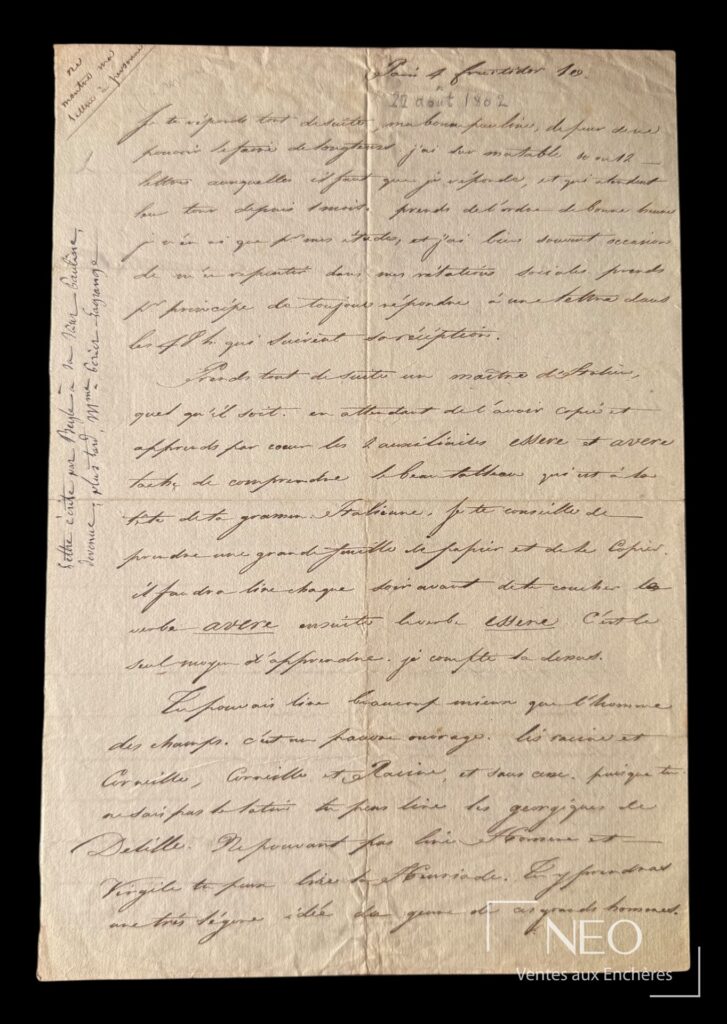 ne
montres ma
lettre à personne
Paris 4 fructidor 10.
22 août 1802
Je te réponds tout de suite, ma bonne pauline, de peur de ne
pouvoir le faire de longtems. j'ai sur ma table 10 ou 12
lettres auxquelles il faut que je réponde, et qui attendent
leur tour depuis 1 mois. prends de l'ordre de bonne heure
je n'en ai que pr mes études, et j'ai bien souvent occasion
de m'en repentir dans mes rélations sociales prends
pr principe de toujours répondre à une lettre dans
les qui suivent sa réception.
Prends tout de suite un maître d'Italien,
quel qu'il soit. en attendant de l'avoir copie et
apprends par coeur les 2 auxiliaires essere et avere
tache de comprendre le beau tableau qui est à la
tête de ta gramm. Italienne. Je te conseille de
prendre une grande feuille de papier et de le copier.
il faudra lire chaque soir avant de te coucher le
verbe avere ensuite le verbe essere C'est le
seul moyen d'apprendre. je compte la dessus.
Tu pouvais lire beaucoup mieux que l'homme
des champs. c'est un pauvre ouvrage. lis racine et
Corneille, Corneille et Racine, et sans cesse. puisque tu
ne sais pas le latin tu peux lire les georgiques de
Delille. Ne pouvant pas lire Homere et
Virgile tu peux lire la Henriade. Tu y prendras
une très légere idée du genre de ces grands hommes.
Lettre écrite par Beyle à sa sœur Pauline,
devenue, plus tard, Mme Périer-Lagrange
NEO
Ventes aux Enchères